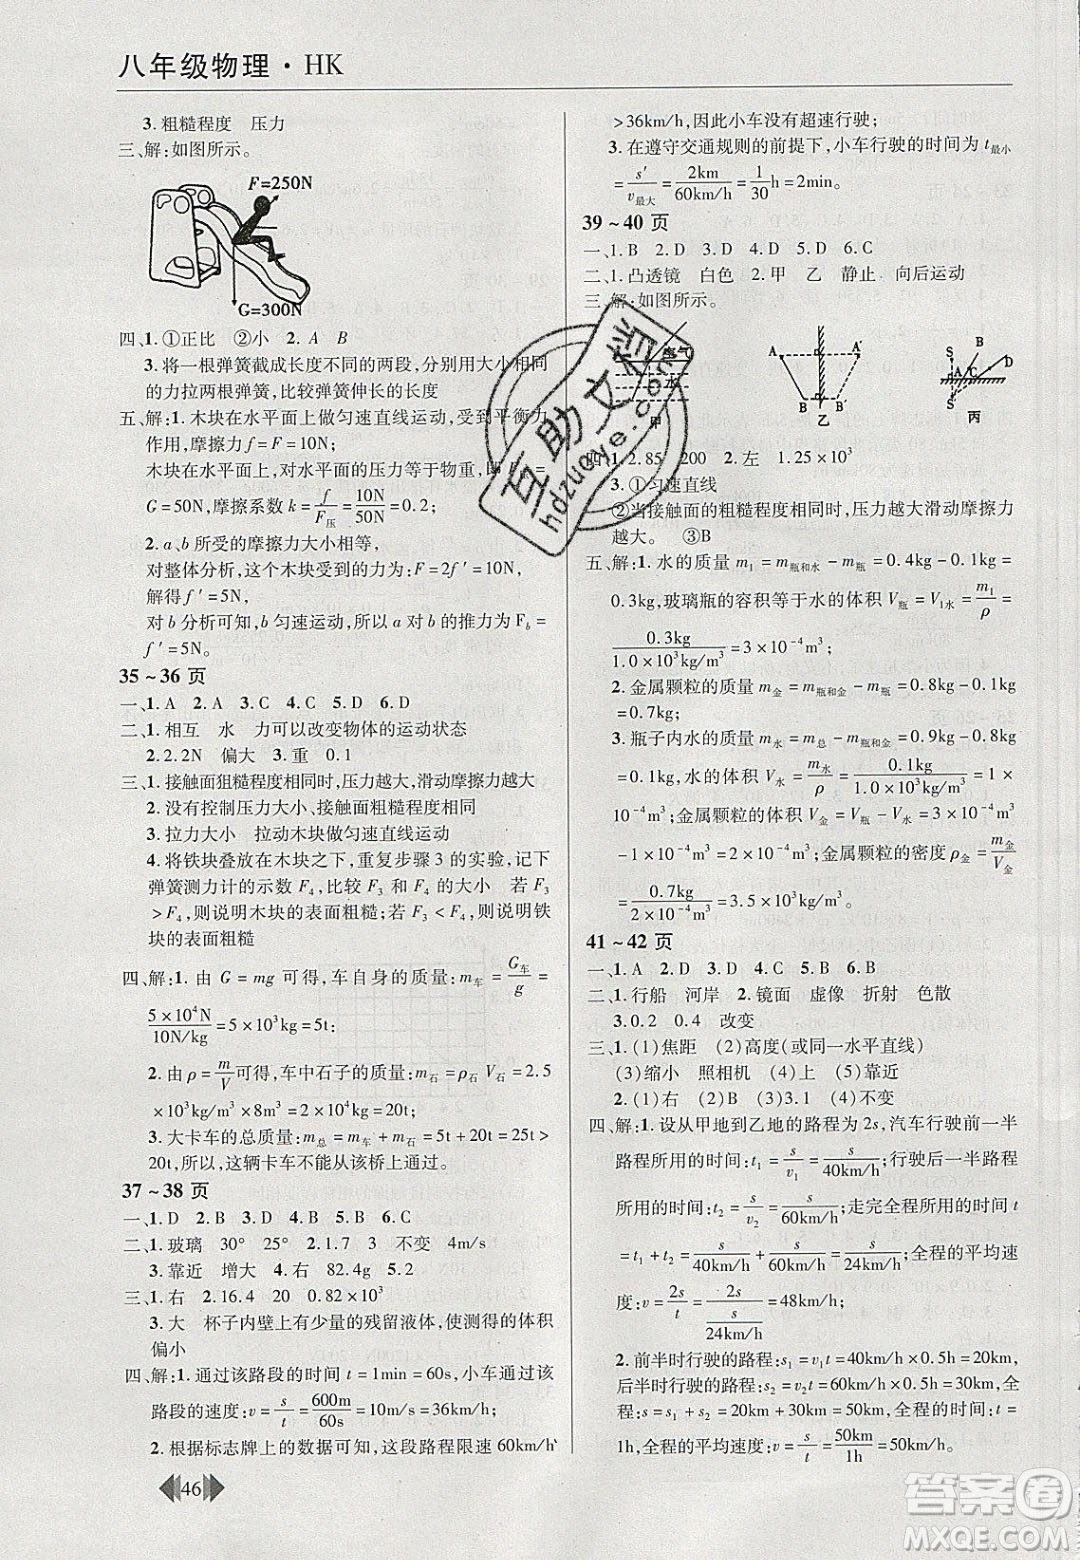 八年级物理·HK
3.粗糙程度 压力
三、解:如图所示。
F=250N
G=300N
四、1.①正比 ②小 2.A B
3.将一根弹簧截成长度不同的两段,分别用大小相同
的力拉两根弹簧,比较弹簧伸长的长度
五、解:1.木块在水平面上做匀速直线运动,受到平衡力
作用,摩擦力f=F=10N;
木块在水平面上,对水平面的压力等于物重,即F压=
G=50N,摩擦系数k=f/F压=10N/50N=0.2;
2.a、b所受的摩擦力大小相等,
对整体分析,这个木块受到的力为:F=2f′=10N;
解得f′=5N;
对b分析可知,b匀速运动,所以a对b的推力为Fb=
f′=5N。
35~36页
一、1.A 2.A 3.C 4.C 5.D 6.D
二、1.相互 水 力可以改变物体的运动状态
2.2.2N 偏大 3.重 0.1
三、1.接触面狙糙程度相同时,压力越大,滑动摩擦力越大
2.没有控制压力大小、接触面粗糙程度相同
3.拉力大小 拉动木块做匀速直线运动
4.将铁块叠放在木块之下,重复步骤3的实验,记下
弹簧测力计的示数F₄,比较F₃和F₄的大小 若F₃
>F₄,则说明木块的表面粗糙;若F₃<F₄,则说明铁
块的表面粗糙
四、解:1.由G=mg可得,车自身的质量:m车=G车/g=
5×10⁴N/10N/kg=5×10³kg=5t;
2.由ρ=m/V可得,车中石子的质量:m石=ρ石V石=2.5
×10³kg/m³×8m³=2×10⁴kg=20t;
3.大卡车的总质量:m总=m车+m石=5t+20t=25t>
20t,所以,这辆卡车不能从该桥上通过。
37~38页
一、1.D 2.B 3.D 4.B 5.B 6.C
二、1.玻璃 30° 25° 2.1.7 3 不变 4m/s
3.靠近 增大 4.右 82.4g 5.2
三、1.右 2.16.4 20 0.82×10³
3.大 杯子内壁上有少量的残留液体,使测得的体积
偏小
四、解:1.通过该路段的时间t=1min=60s,小车通过该
路段的速度:v=s/t=600m/60s=10m/s=36km/h;
2.根据标志牌上的数据可知,这段路程限速60km/h
46
>36km/h,因此小车没有超速行驶;
3.在遵守交通规则的前提下,小车行驶的时间为t最小
=s′/v最大=2km/60km/h=1/30h=2min。
39~40页
一、1.B 2.D 3.D 4.D 5.D 6.C
二、1.凸透镜 白色 2.甲 乙 静止 向后运动
三、解:如图所示。
空气
水
甲
A A′
B B′
乙
S A C B D
S′
丙
四、1.2.85 200 2.左 1.25×10³
3.①匀速直线
②当接触面的粗糙程度相同时,压力越大滑动摩擦力
越大。 ③B
五、解:1.水的质量m₁=m瓶和水-m瓶=0.4kg-0.1kg=
0.3kg,玻璃瓶的容积等于水的体积V瓶=V₁水=m₁/ρ=
0.3kg/1.0×10³kg/m³=3×10⁻⁴m³;
2.金属颗粒的质量m金=m瓶和金-m瓶=0.8kg-0.1kg
=0.7kg;
3.瓶子内水的质量m水=m总-m瓶和金=0.9kg-0.8kg
=0.1kg,水的体积V水=m水/ρ=0.1kg/1.0×10³kg/m³=1×
10⁻⁴m³;金属颗粒的体积V金=V瓶-V水=3×10⁻⁴m³
-1×10⁻⁴m³=2×10⁻⁴m³;金属颗粒的密度ρ金=m金/V金
=0.7kg/2×10⁻⁴m³=3.5×10³kg/m³。
41~42页
一、1.A 2.D 3.D 4.C 5.B 6.B
二、1.行船 河岸 2.镜面 虚像 折射 色散
3.0.2 0.4 改变
三、1.(1)焦距 (2)高度(或同一水平直线)
(3)缩小 照相机 (4)5 (5)靠近
2.(1)右 (2)B (3)3.1 (4)不变
四、解:1.设从甲地到乙地的路程为2s,汽车行驶前一半
路程所用的时间:t₁=s/v₁=s/40km/h;行驶后一半路程
所用的时间:t₂=s/v₂=s/60km/h;走完全程所用的时间t
=t₁+t₂=s/40km/h+s/60km/h=s/24km/h;全程的平均速
度:v=2s/t=2s/(s/24km/h)=48km/h;
2.前半时行驶的路程:s₁=v₁t=40km/h×0.5h=20km,
后半时行驶的路程:s₂=v₂t=60km/h×0.5h=30km,全
程:s=s₁+s₂=20km+30km=50km,全程的时间:t=
1h,全程的平均速度:v=s/t=50km/1h=50km/h。
互助文档
hdzuoye.com
答案圈
MXQE.COM